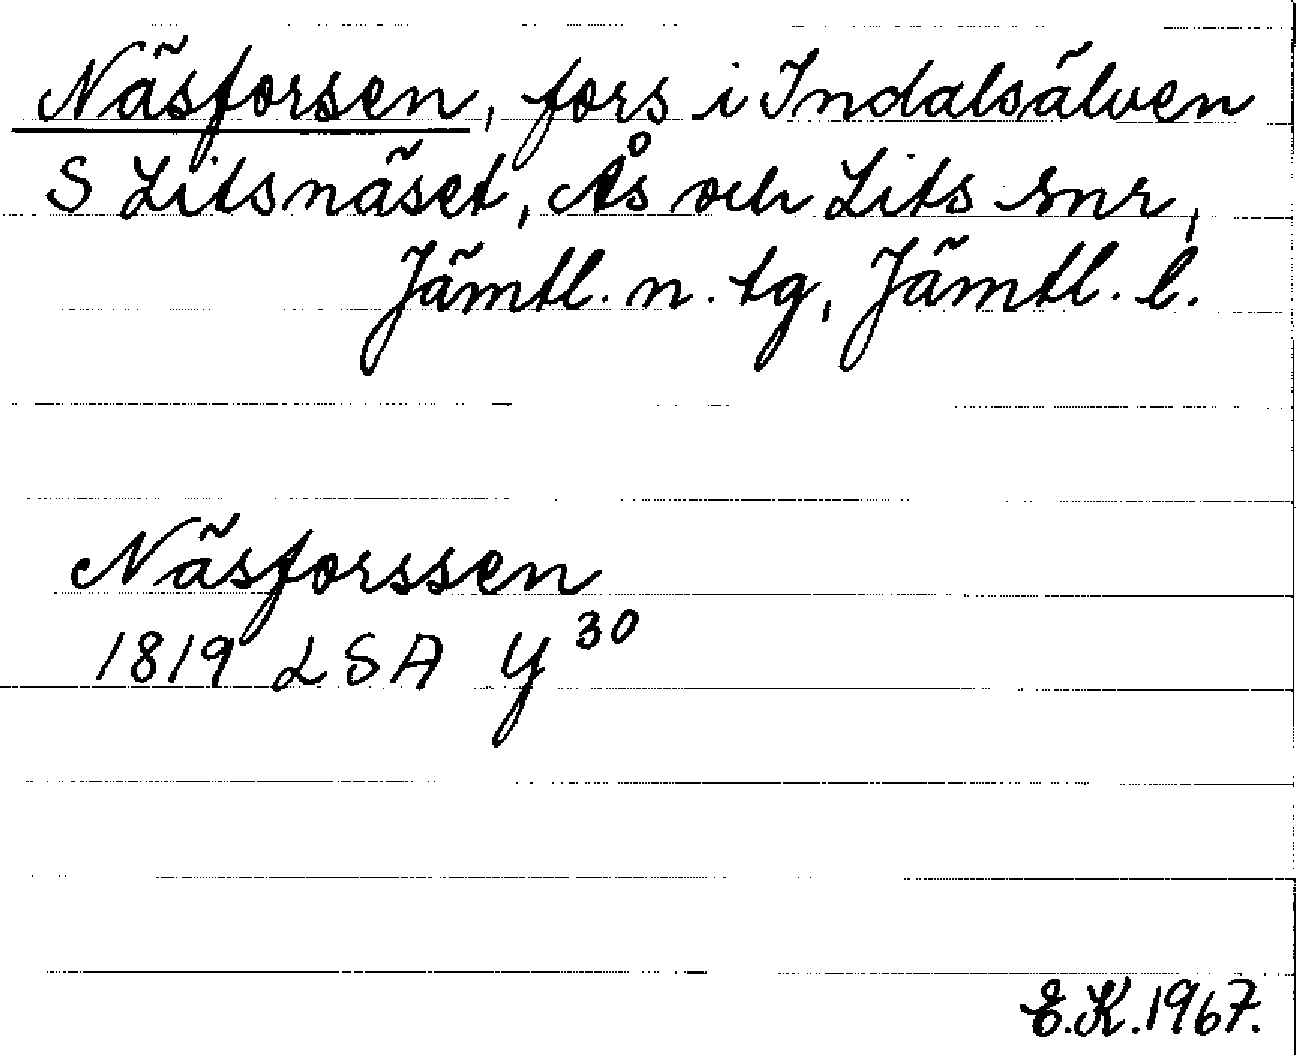 Näsforsen, fors i Indalsälven
S Litsnäset, Ås och Lits snr,
Jämtl. n. tg, Jämtl. l.
Näsforssen
1819 LSA Y 30
E.K. 1967.